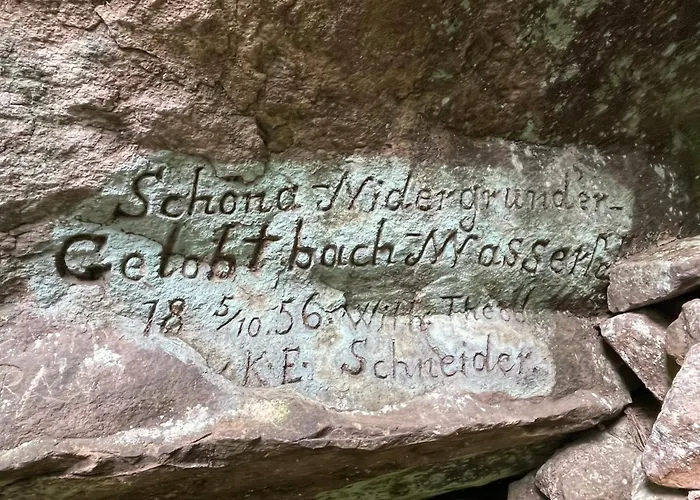 Schöna-Nidergrund'er-
Gelobtbach-Wasserf
18 5/10. 56. Wilh. Theod.
K. E. Schneider.